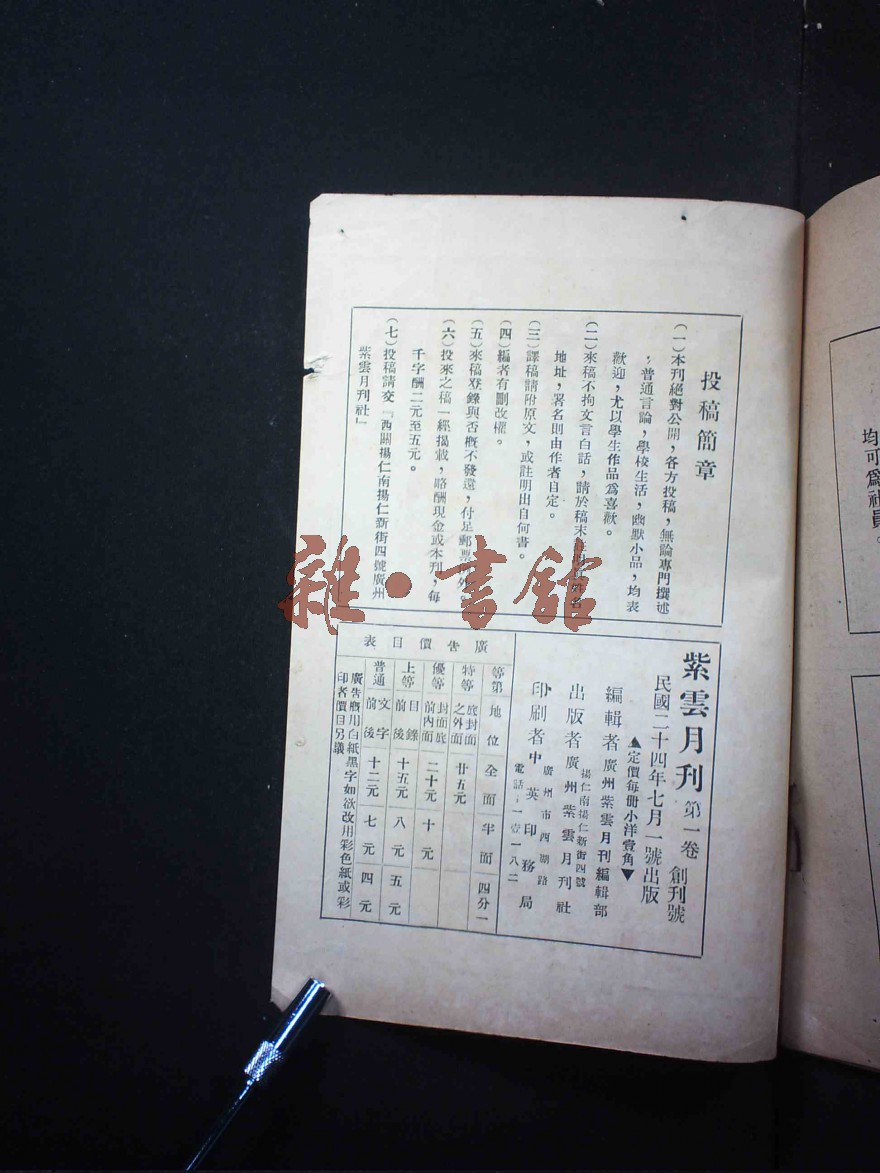 投稿簡章
（一）本刊絕對公開，各方投稿，無論專門撰述
，普通言論，學校生活，幽默小品，均表
歡迎，尤以學生作品為喜歡。
（二）來稿不拘文言白話，請於稿末姓名
地址，署名則由作者自定。
（三）譯稿請附原文，或註明出自何書。
（四）編者有刪改權。
（五）來稿登錄與否概不發還，付足郵票外
（六）投來之稿一經揭載，略酬現金或本刊，每
千字酬二元至五元。
（七）投稿請交『西關揚仁南揚仁新街四號廣州
紫雲月刊社』
紫雲月刊 第一卷 創刊號
民國二十四年七月一號出版
▲定價每冊小洋壹角▼
編輯者 廣州紫雲月刊編輯部
揚仁南揚仁新街四號
出版者 廣州紫雲月刊社
廣州市西湖路
印刷者 中英印務局
電話：一壹一八二
廣告價目表
等第 地位 全面 半面 四分一
特等 底封面之外面 廿五元
優等 封面底前內面 二十元 十元
上等 目錄前後 十五元 八元 五元
普通 文字前後 十二元 七元 四元
廣告概用白紙黑字如欲改用彩色紙或彩
印者價目另議
均可為社員。
雜·書館